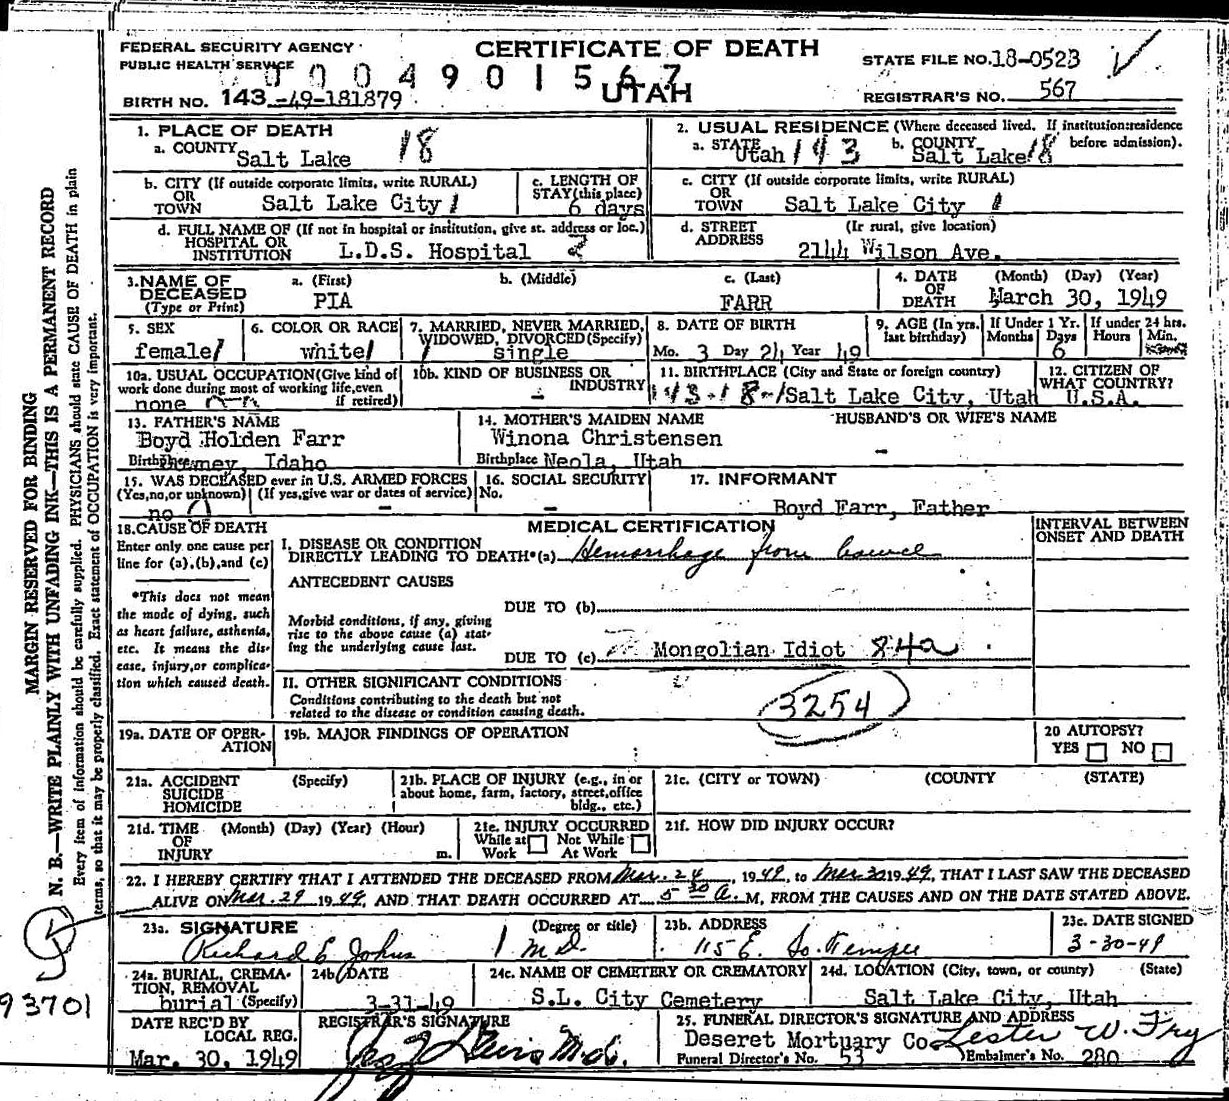 FEDERAL SECURITY AGENCY
PUBLIC HEALTH SERVICE
CERTIFICATE OF DEATH
UTAH
0004901567
BIRTH NO. 143-49-181879
STATE FILE NO. 18-0523
REGISTRAR'S NO. 567
MARGIN RESERVED FOR BINDING
N. B.—WRITE PLAINLY WITH UNFADING INK—THIS IS A PERMANENT RECORD
Every item of information should be carefully supplied. PHYSICIANS should state CAUSE OF DEATH in plain
terms, so that it may be properly classified. Exact statement of OCCUPATION is very important.
93701
1. PLACE OF DEATH
a. COUNTY
Salt Lake 18
2. USUAL RESIDENCE (Where deceased lived. If institution: residence before admission).
a. STATE Utah 143 b. COUNTY Salt Lake 18
b. CITY (If outside corporate limits, write RURAL)
OR
TOWN Salt Lake City 1
c. LENGTH OF
STAY (this place)
6 days
c. CITY (If outside corporate limits, write RURAL)
OR
TOWN Salt Lake City 1
d. FULL NAME OF (If not in hospital or institution, give st. address or loc.)
HOSPITAL OR
INSTITUTION L.D.S. Hospital 2
d. STREET (If rural, give location)
ADDRESS 2144 Wilson Ave.
3. NAME OF
DECEASED
(Type or Print)
a. (First) b. (Middle) c. (Last)
PIA FARR
4. DATE (Month) (Day) (Year)
OF
DEATH March 30, 1949
5. SEX
female 1
6. COLOR OR RACE
white 1
7. MARRIED, NEVER MARRIED,
WIDOWED, DIVORCED (Specify)
1 single
8. DATE OF BIRTH
Mo. 3 Day 24 Year 49
9. AGE (In yrs.
last birthday)
If Under 1 Yr.
Months Days
6
If under 24 hrs.
Hours Min.
10a. USUAL OCCUPATION (Give kind of
work done during most of working life, even
if retired)
none
10b. KIND OF BUSINESS OR
INDUSTRY
-
11. BIRTHPLACE (City and State or foreign country)
143-18-1 Salt Lake City, Utah
12. CITIZEN OF
WHAT COUNTRY?
U.S.A.
13. FATHER'S NAME
Boyd Holden Farr
Birthplace, Idaho
14. MOTHER'S MAIDEN NAME
Winona Christensen
Birthplace Neola, Utah
HUSBAND'S OR WIFE'S NAME
-
15. WAS DECEASED ever in U.S. ARMED FORCES
(Yes, no, or unknown) (If yes, give war or dates of service)
no 0 -
16. SOCIAL SECURITY
No.
-
17. INFORMANT
Boyd Farr, Father
18. CAUSE OF DEATH
Enter only one cause per
line for (a), (b), and (c)
*This does not mean
the mode of dying, such
as heart failure, asthenia,
etc. It means the dis-
ease, injury, or complica-
tion which caused death.
MEDICAL CERTIFICATION
INTERVAL BETWEEN
ONSET AND DEATH
I. DISEASE OR CONDITION
DIRECTLY LEADING TO DEATH* (a) Hemorrhage from bowel
ANTECEDENT CAUSES
DUE TO (b)
Morbid conditions, if any, giving
rise to the above cause (a) stat-
ing the underlying cause last.
DUE TO (c) Mongolian Idiot 84a
II. OTHER SIGNIFICANT CONDITIONS
Conditions contributing to the death but not
related to the disease or condition causing death.
3254
19a. DATE OF OPER-
ATION
19b. MAJOR FINDINGS OF OPERATION
20 AUTOPSY?
YES NO
21a. ACCIDENT (Specify)
SUICIDE
HOMICIDE
21b. PLACE OF INJURY (e.g., in or
about home, farm, factory, street, office
bldg., etc.)
21c. (CITY or TOWN) (COUNTY (STATE)
21d. TIME (Month) (Day) (Year) (Hour)
OF
INJURY m.
21e. INJURY OCCURRED
While at Work Not While At Work
21f. HOW DID INJURY OCCUR?
22. I HEREBY CERTIFY THAT I ATTENDED THE DECEASED FROM Mar. 24, 1949, to Mar 30 1949, THAT I LAST SAW THE DECEASED
ALIVE ON Mar. 29 1949, AND THAT DEATH OCCURRED AT 5 30 a. M, FROM THE CAUSES AND ON THE DATE STATED ABOVE.
23a. SIGNATURE (Degree or title)
Richard E Johns 1 M.D.
23b. ADDRESS
115 E. So. Temple
23c. DATE SIGNED
3-30-49
24a. BURIAL, CREMA-
TION, REMOVAL
burial (Specify)
24b. DATE
3-31-49
24c. NAME OF CEMETERY OR CREMATORY
S.L. City Cemetery
24d. LOCATION (City, town, or county) (State)
Salt Lake City, Utah
DATE REC'D BY
LOCAL REG.
Mar. 30, 1949
REGISTRAR'S SIGNATURE
25. FUNERAL DIRECTOR'S SIGNATURE AND ADDRESS
Deseret Mortuary Co. Lester W. Fry
Funeral Director's No. 53 Embalmer's No. 280